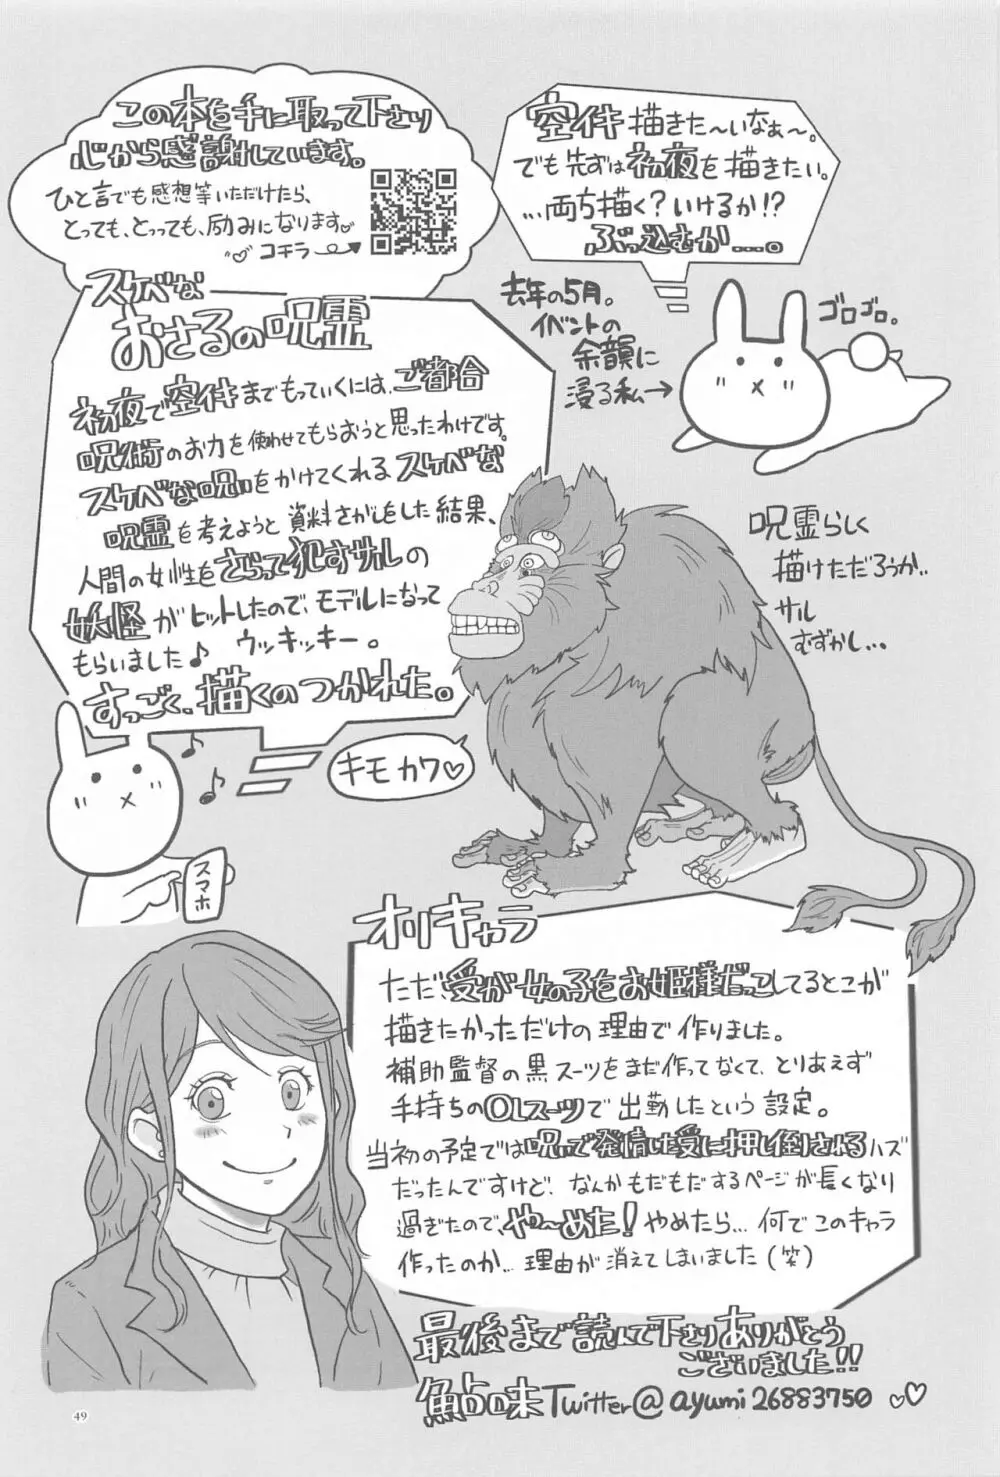 この本を手に取って下さり
心から感謝しています。
ひと言でも感想等いただけたら、
とっても、とっっても、励みになります♡
コチラ
空イキ描きた～いなぁ～。
でも先ずは初夜を描きたい。
…両方描く？いけるか!?
ぶっ込むか……。
去年の5月。
イベントの
余韻に
浸る私→
ゴロゴロ。
スケベな
おさるの呪霊
初夜で空イキまでもっていくには、ご都合
呪術のお力を使わせてもらおうと思ったわけです。
スケベな呪いをかけてくれるスケベな
呪霊を考えようと資料さがしをした結果、
人間の女性をさらって犯すサルの
妖怪がヒットしたので、モデルになって
もらいました♪ ウッキッキー。
すっごく、描くのつかれた。
呪霊らしく
描けただろうか..
サル
むずかし...
キモカワ♡
スマホ
オリキャラ
ただ、受が女の子をお姫様だっこしてるとこが
描きたかっただけの理由で作りました。
補助監督の黒スーツをまだ作ってなくて、とりあえず
手持ちのOLスーツで出勤したという設定。
当初の予定では呪いで発情した受に押し倒されるハズ
だったんですけど、なんかもだもだするページが長くなり
過ぎたので、や～めた！やめたら…何でこのキャラ
作ったのか…理由が消えてしまいました(笑)
最後まで読んで下さりありがとう
ございました!!
鮎味 Twitter@ayumi26883750
49